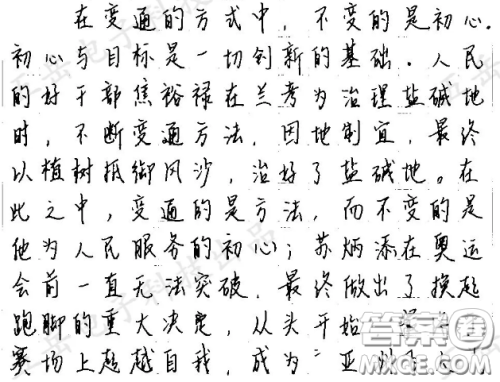 在变通的方式中，不变的是初心.
初心与目标是一切创新的基础．人民
的好干部焦裕禄在兰考为治理盐碱地
时，不断变通方法，因地制宜，最终
以植树抵御风沙，治好了盐碱地。在
此之中，变通的是方法，而不变的是
他为人民服务的初心；苏炳添在奥运
会前一直无法突破，最终做出了换起
跑脚的重大决定，从头开始
赛场上超越自我，成为“亚
答案圈